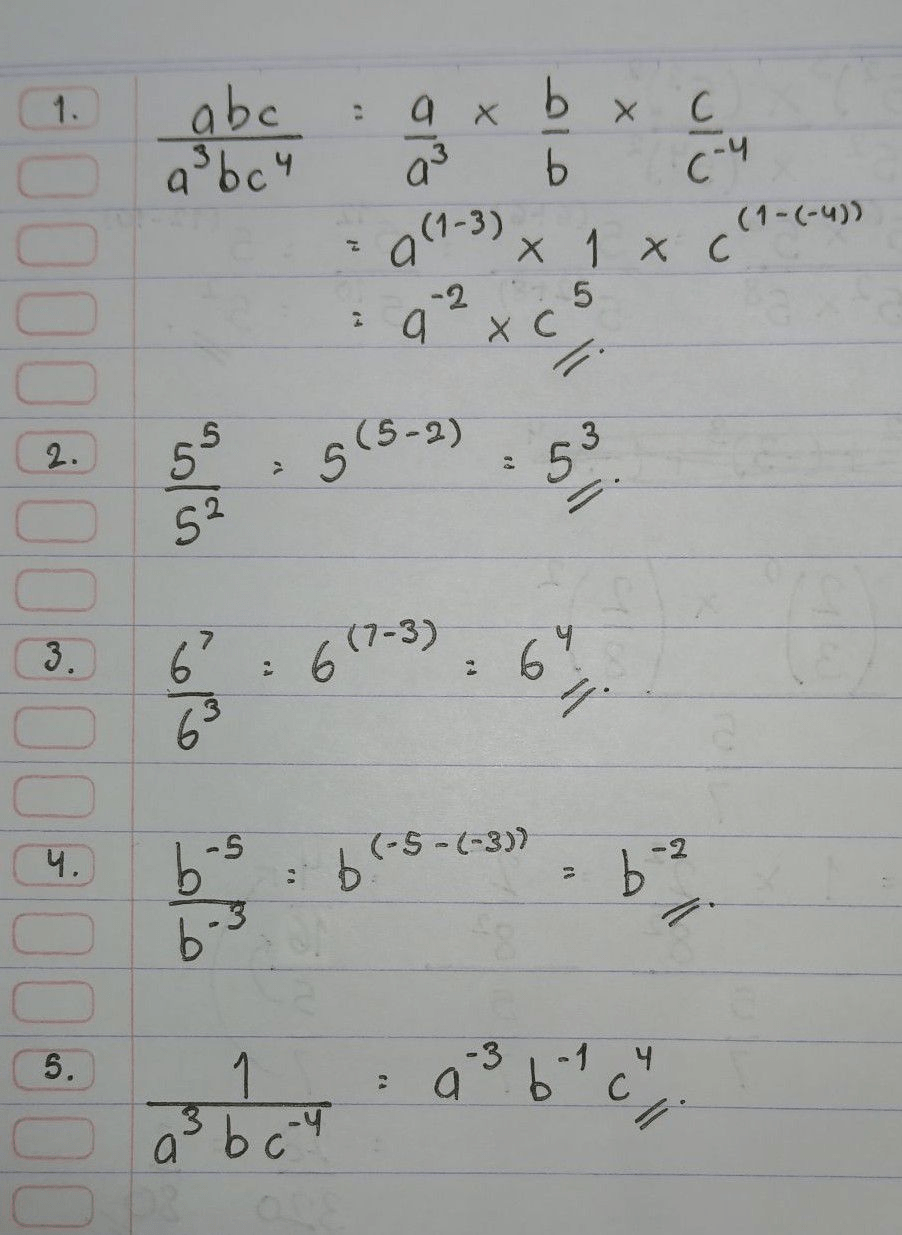 1. abc/a³bc⁴ = a/a³ × b/b × c/c⁻⁴
= a⁽¹⁻³⁾ × 1 × c⁽¹⁻⁽⁻⁴⁾⁾
= a⁻² × c⁵
2. 5⁵/5² = 5⁽⁵⁻²⁾ = 5³
3. 6⁷/6³ = 6⁽⁷⁻³⁾ = 6⁴
4. b⁻⁵/b⁻³ = b⁽⁻⁵⁻⁽⁻³⁾⁾ = b⁻²
5. 1/a³bc⁻⁴ = a⁻³ b⁻¹ c⁴